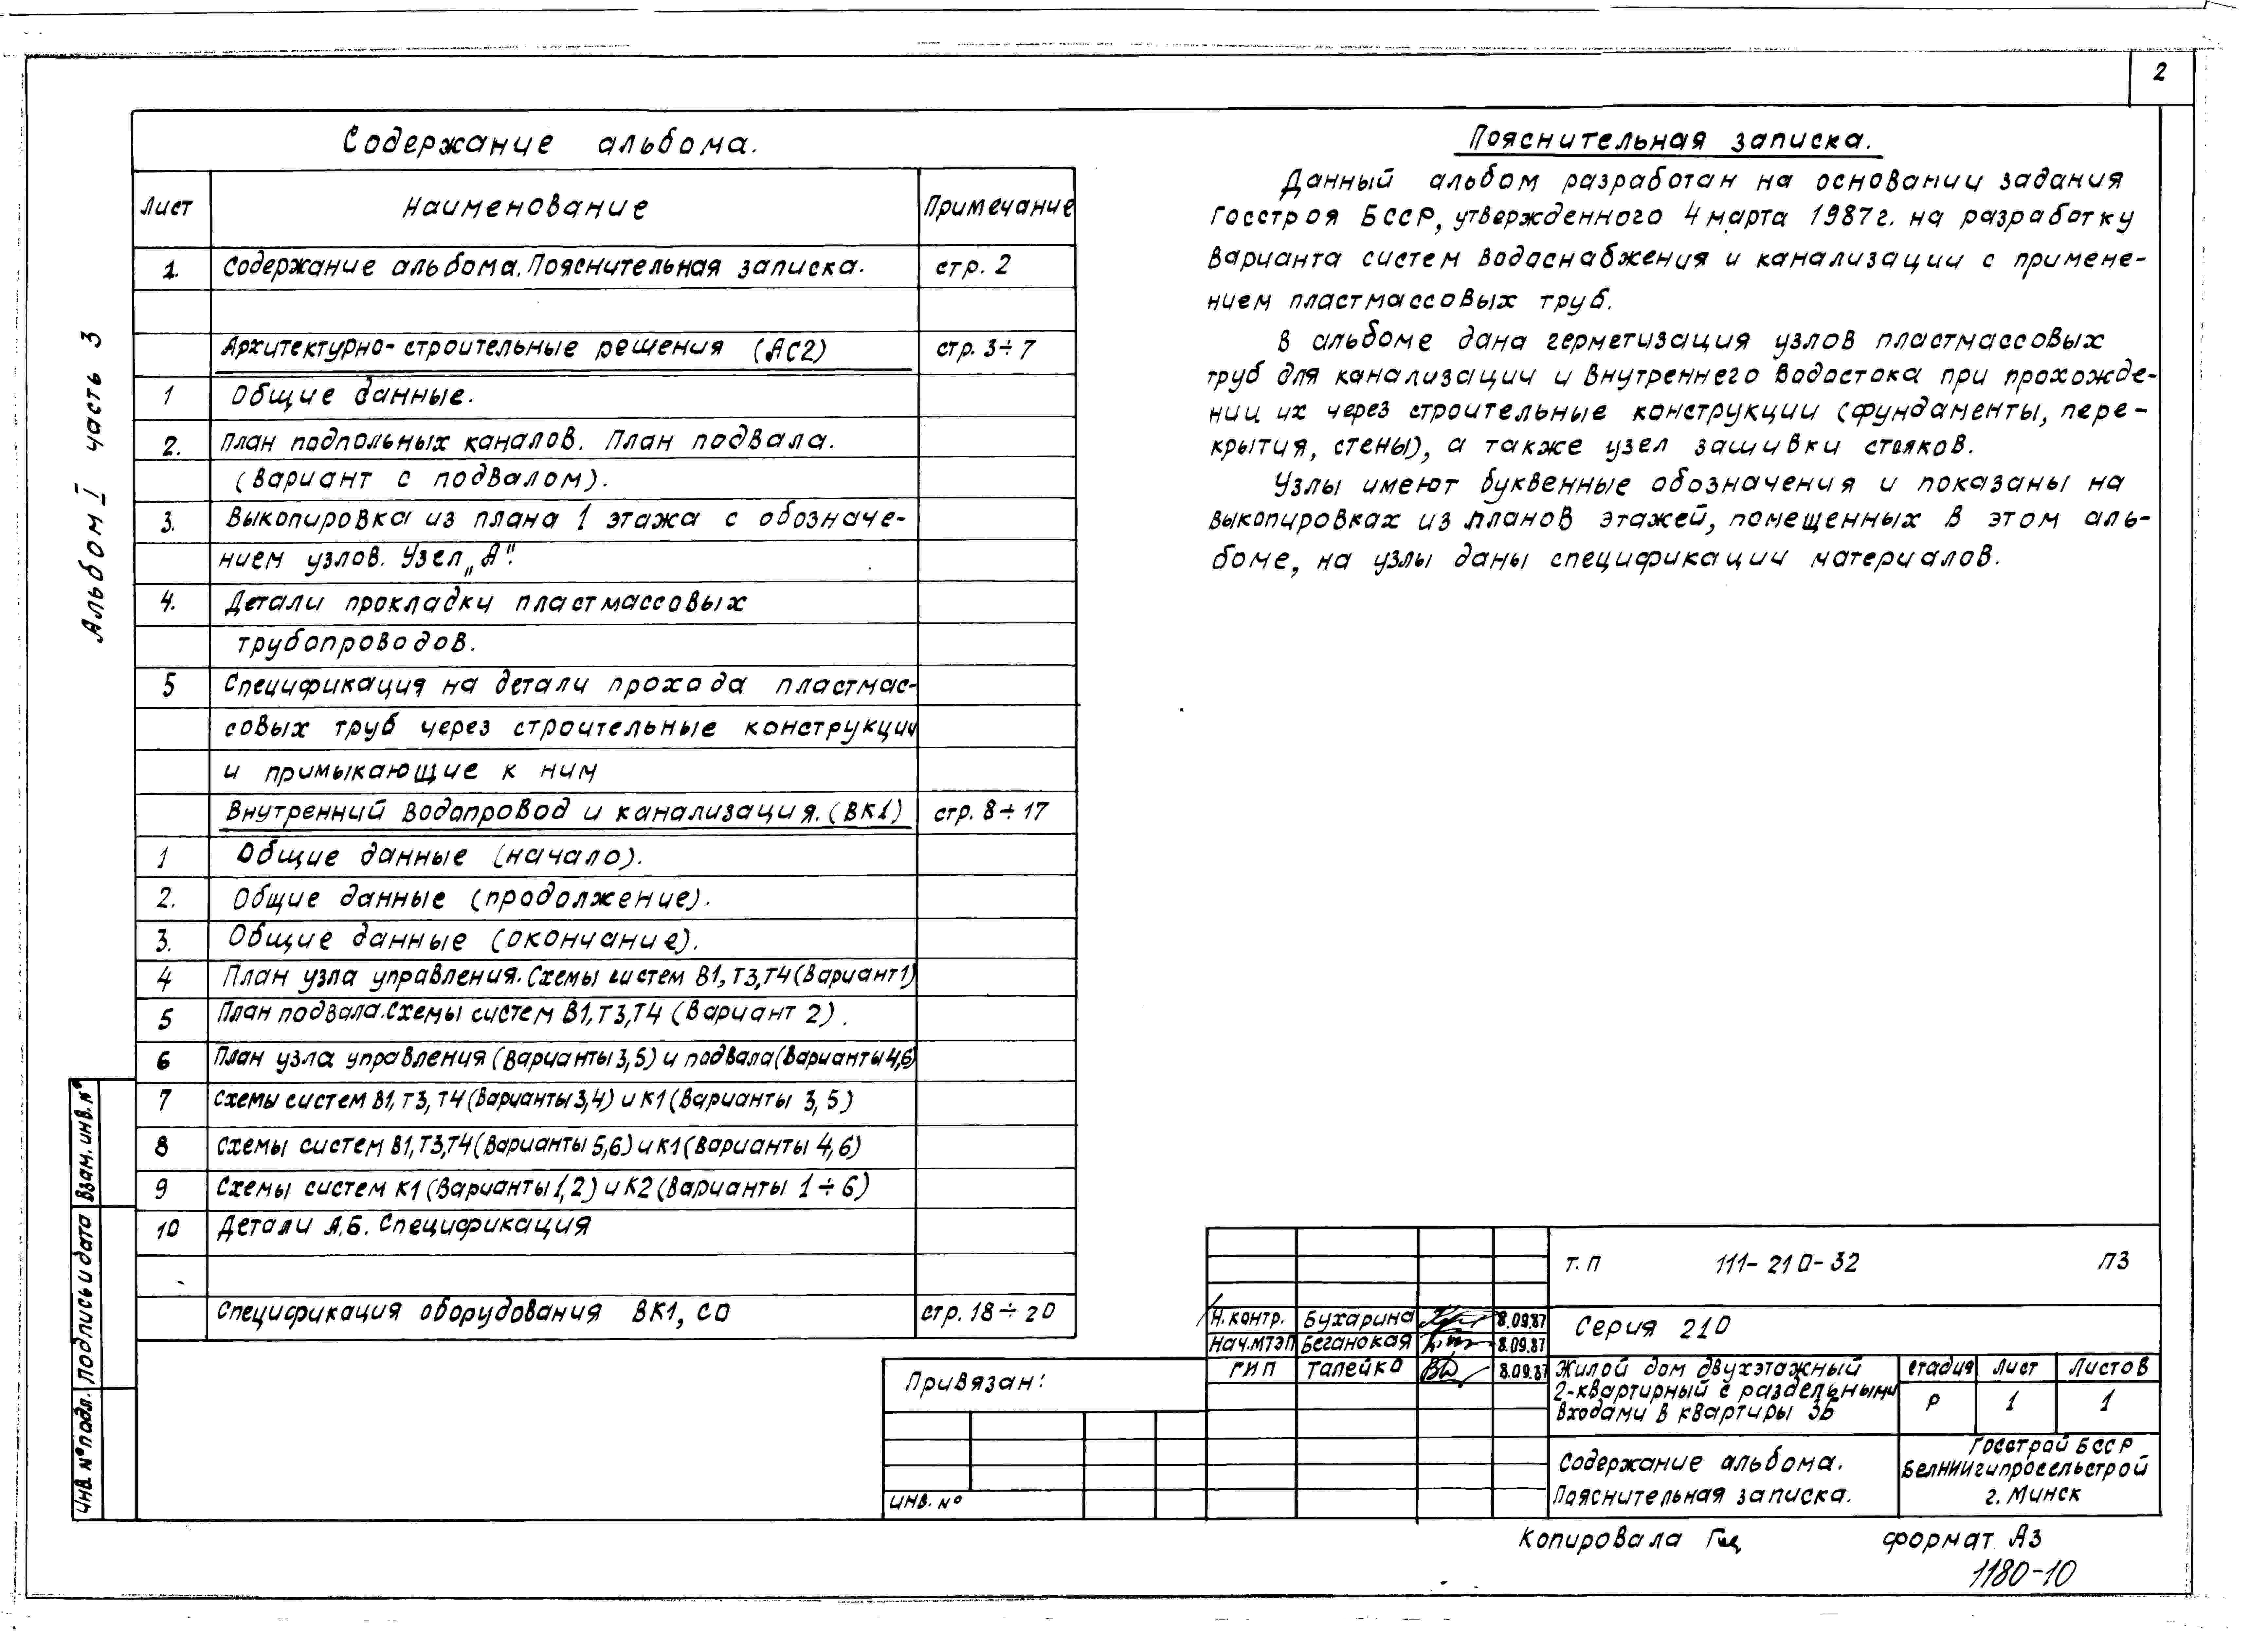 2
Содержание альбома.
Лист Наименование Примечание
1. Содержание альбома. Пояснительная записка. стр. 2
Архитектурно-строительные решения (АС2) стр. 3÷7
1 Общие данные.
2. План подпольных каналов. План подвала.
(Вариант с подвалом).
3. Выкопировка из плана 1 этажа с обозначе-
нием узлов. Узел „А".
4. Детали прокладки пластмассовых
трубопроводов.
5 Спецификация на детали прохода пластмас-
совых труб через строительные конструкции
и примыкающие к ним
Внутренний водопровод и канализация. (ВК1) стр. 8÷17
1 Общие данные (начало).
2. Общие данные (продолжение).
3. Общие данные (окончание).
4 План узла управления. Схемы систем В1, Т3, Т4 (Вариант 1)
5 План подвала. Схемы систем В1, Т3, Т4 (Вариант 2).
6 План узла управления (Варианты 3, 5) и подвала (Варианты 4, 6)
7 Схемы систем В1, Т3, Т4 (Варианты 3, 4) и К1 (Варианты 3, 5)
8 Схемы систем В1, Т3, Т4 (Варианты 5, 6) и К1 (Варианты 4, 6)
9 Схемы систем К1 (Варианты 1, 2) и К2 (Варианты 1÷6)
10 Детали А, Б. Спецификация
Спецификация оборудования ВК1, СО стр. 18÷20
Пояснительная записка.
Данный альбом разработан на основании задания
Госстроя БССР, утвержденного 4 марта 1987г. на разработку
варианта систем водоснабжения и канализации с примене-
нием пластмассовых труб.
В альбоме дана герметизация узлов пластмассовых
труб для канализации и внутреннего водостока при прохожде-
нии их через строительные конструкции (фундаменты, пере-
крытия, стены), а также узел зашивки стояков.
Узлы имеют буквенные обозначения и показаны на
выкопировках из планов этажей, помещенных в этом аль-
боме, на узлы даны спецификации материалов.
Альбом I часть 3
Взам. инв. №
Подпись и дата
Инв. № подл.
Привязан:
Инв. №
Т.П 111-210-32 ПЗ
Н. контр. Бухарина 8.09.87
Нач. МТЭП Беганская 8.09.87
ГИП Талейко 8.09.87
Серия 210
Жилой дом двухэтажный
2-квартирный с раздельными
входами в квартиры 3Б
Стадия Лист Листов
Р 1 1
Содержание альбома.
Пояснительная записка.
Госстрой БССР
БелНИИгипросельстрой
г. Минск
Копировала формат А3
1180-10